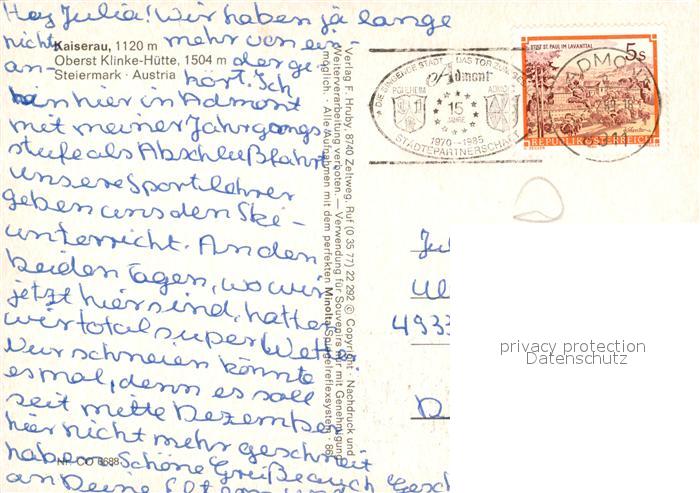 Hey Julia! Wir haben ja lange
nicht mehr von ein-
an- der ge
hört. Ich
bin hier in Admont
mit meiner Jahrgangs
stufe als Abschlußfahrt
unsere Sportlehrer
geben uns den Ski-
unterricht. An den
beiden Tagen, wo wir
jetzt hier sind, hatten
wir total super Wetter
Nur schneien könnte
es mal, denn es soll
seit mitte Dezember
hier nicht mehr geschneit
haben. Schöne Grüße auch
an Deine Eltern
Kaiserau, 1120 m
Oberst Klinke-Hütte, 1504 m
Steiermark - Austria
Nr. CO 6688
Verlag F. Hruby, 8740 Zeltweg, Ruf (0 35 77) 22 292 © Copyright - Nachdruck und
Weiterverarbeitung verboten. — Verwendung für Souvenirs nur mit Genehmigung
möglich. - Alle Aufnahmen mit dem perfekten Minolta Spiegelreflexsystem 86
DIE SINGENDE STADT DAS TOR ZUM
Admont
POHLHEIM
ADMONT
15
JAHRE
1970 - 1985
STÄDTEPARTNERSCHAFT
STIFT ST. PAUL IM LAVANTTAL
5s
REPUBLIK ÖSTERREICH
ADMONT
Jul
Ul
4933
D
privacy protection
Datenschutz